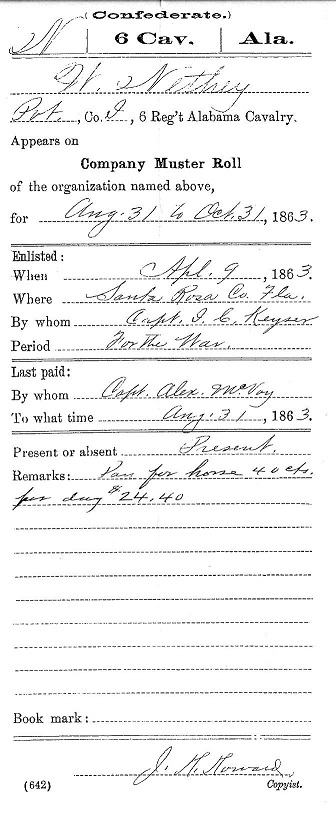 (Confederate.)
N | 6 Cav. | Ala.
W. Nethey
Pvt., Co. I, 6 Reg't Alabama Cavalry.
Appears on
Company Muster Roll
of the organization named above,
for Aug. 31 to Oct. 31, 1863.
Enlisted:
When Apl. 9, 1863.
Where Santa Rosa Co. Fla.
By whom Capt. I. C. Keyser
Period For the War.
Last paid:
By whom Capt. Alex. McVoy
To what time Aug. 31, 1863.
Present or absent Present.
Remarks: Pay for horse 40 cts.
per day $24.40
Book mark:
J. H. Howard
(642) Copyist.